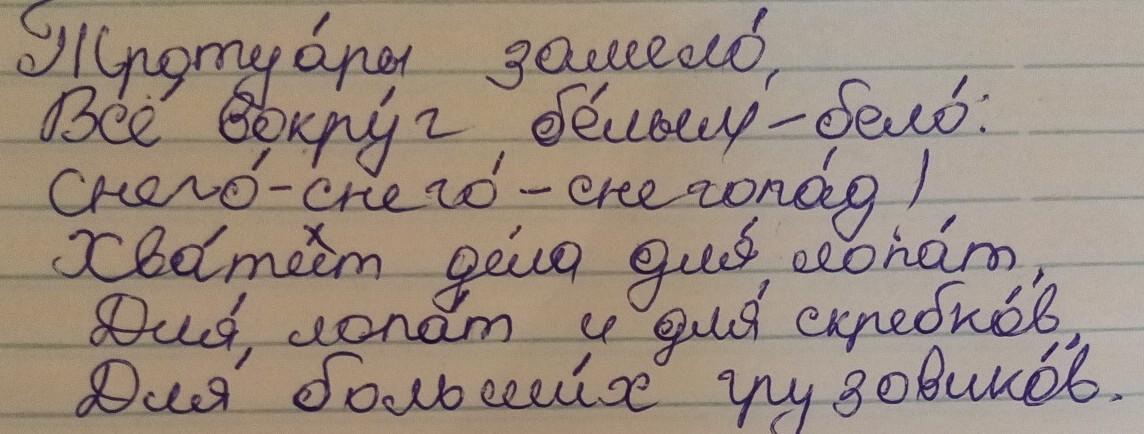 Тротуа́ры замело́,
Всё вокру́г бе́лым-бело́:
Снего́-снего́-снегопа́д!
Хва́тит де́ла для́ лопа́т,
Для́ лопа́т и для́ скребко́в,
Для́ больши́х грузовико́в.